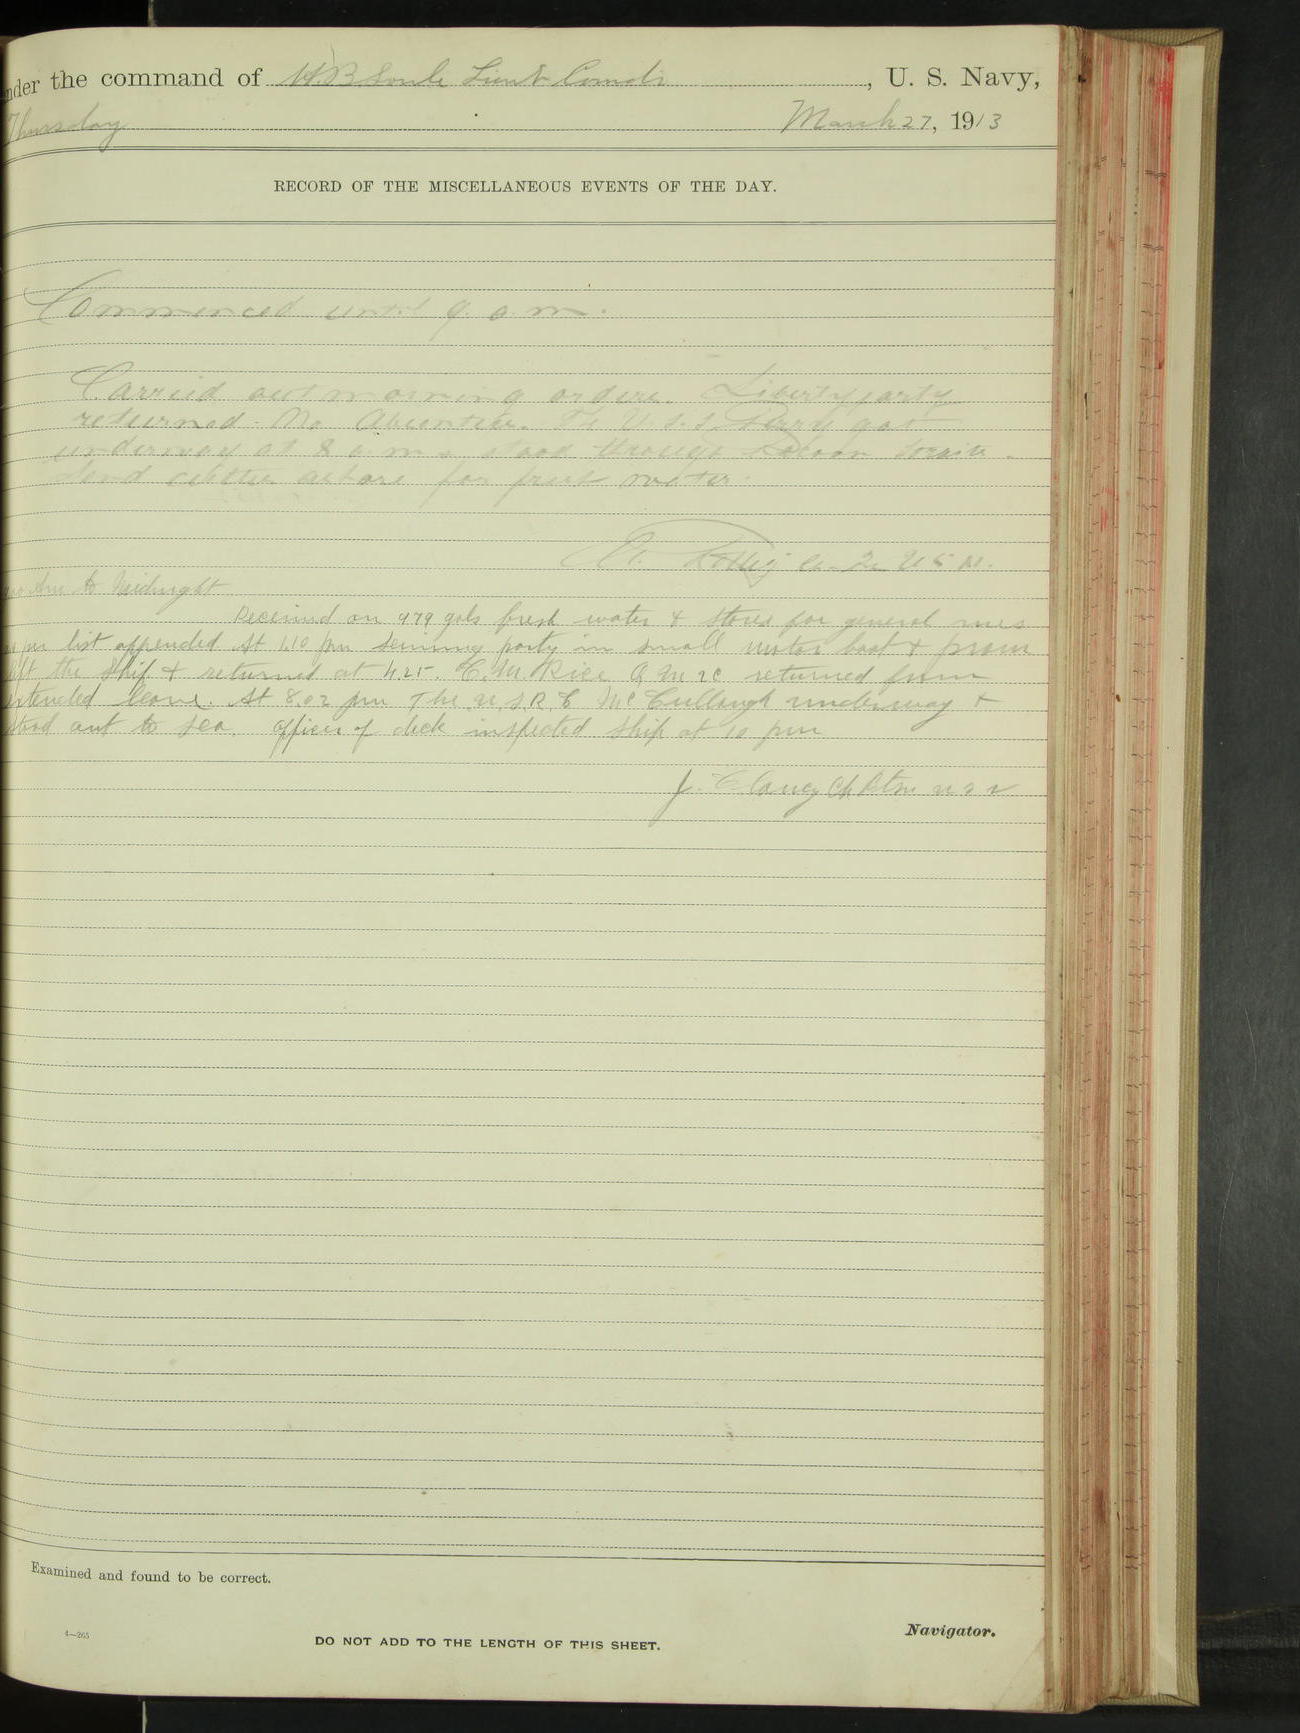 nder the command of H.B. Soule Lieut Comdr , U. S. Navy,
Thursday March 27, 1913
RECORD OF THE MISCELLANEOUS EVENTS OF THE DAY.
Commenced until 9. a. m.
Carried out morning orders. Liberty party
returned. No Absentees. The U.S.S. Perry got
underway at 8 a.m. & stood through
Send cutter ashore for fresh water.
A. U S N.
to Midnight
Received on 979 gals fresh water & stores for general mess
as per list appended. At 1.10 pm seining party in small motor boat &
left the ship & returned at 4.25. C. M. Rice Q M 2c returned from
extended leave. At 8.02 pm The U.S.R.C McCullough underway &
stood out to sea. Officer of deck inspected ship at 10 pm
J. Clancy Ch Btm U S N
Examined and found to be correct.
4—265
DO NOT ADD TO THE LENGTH OF THIS SHEET.
Navigator.